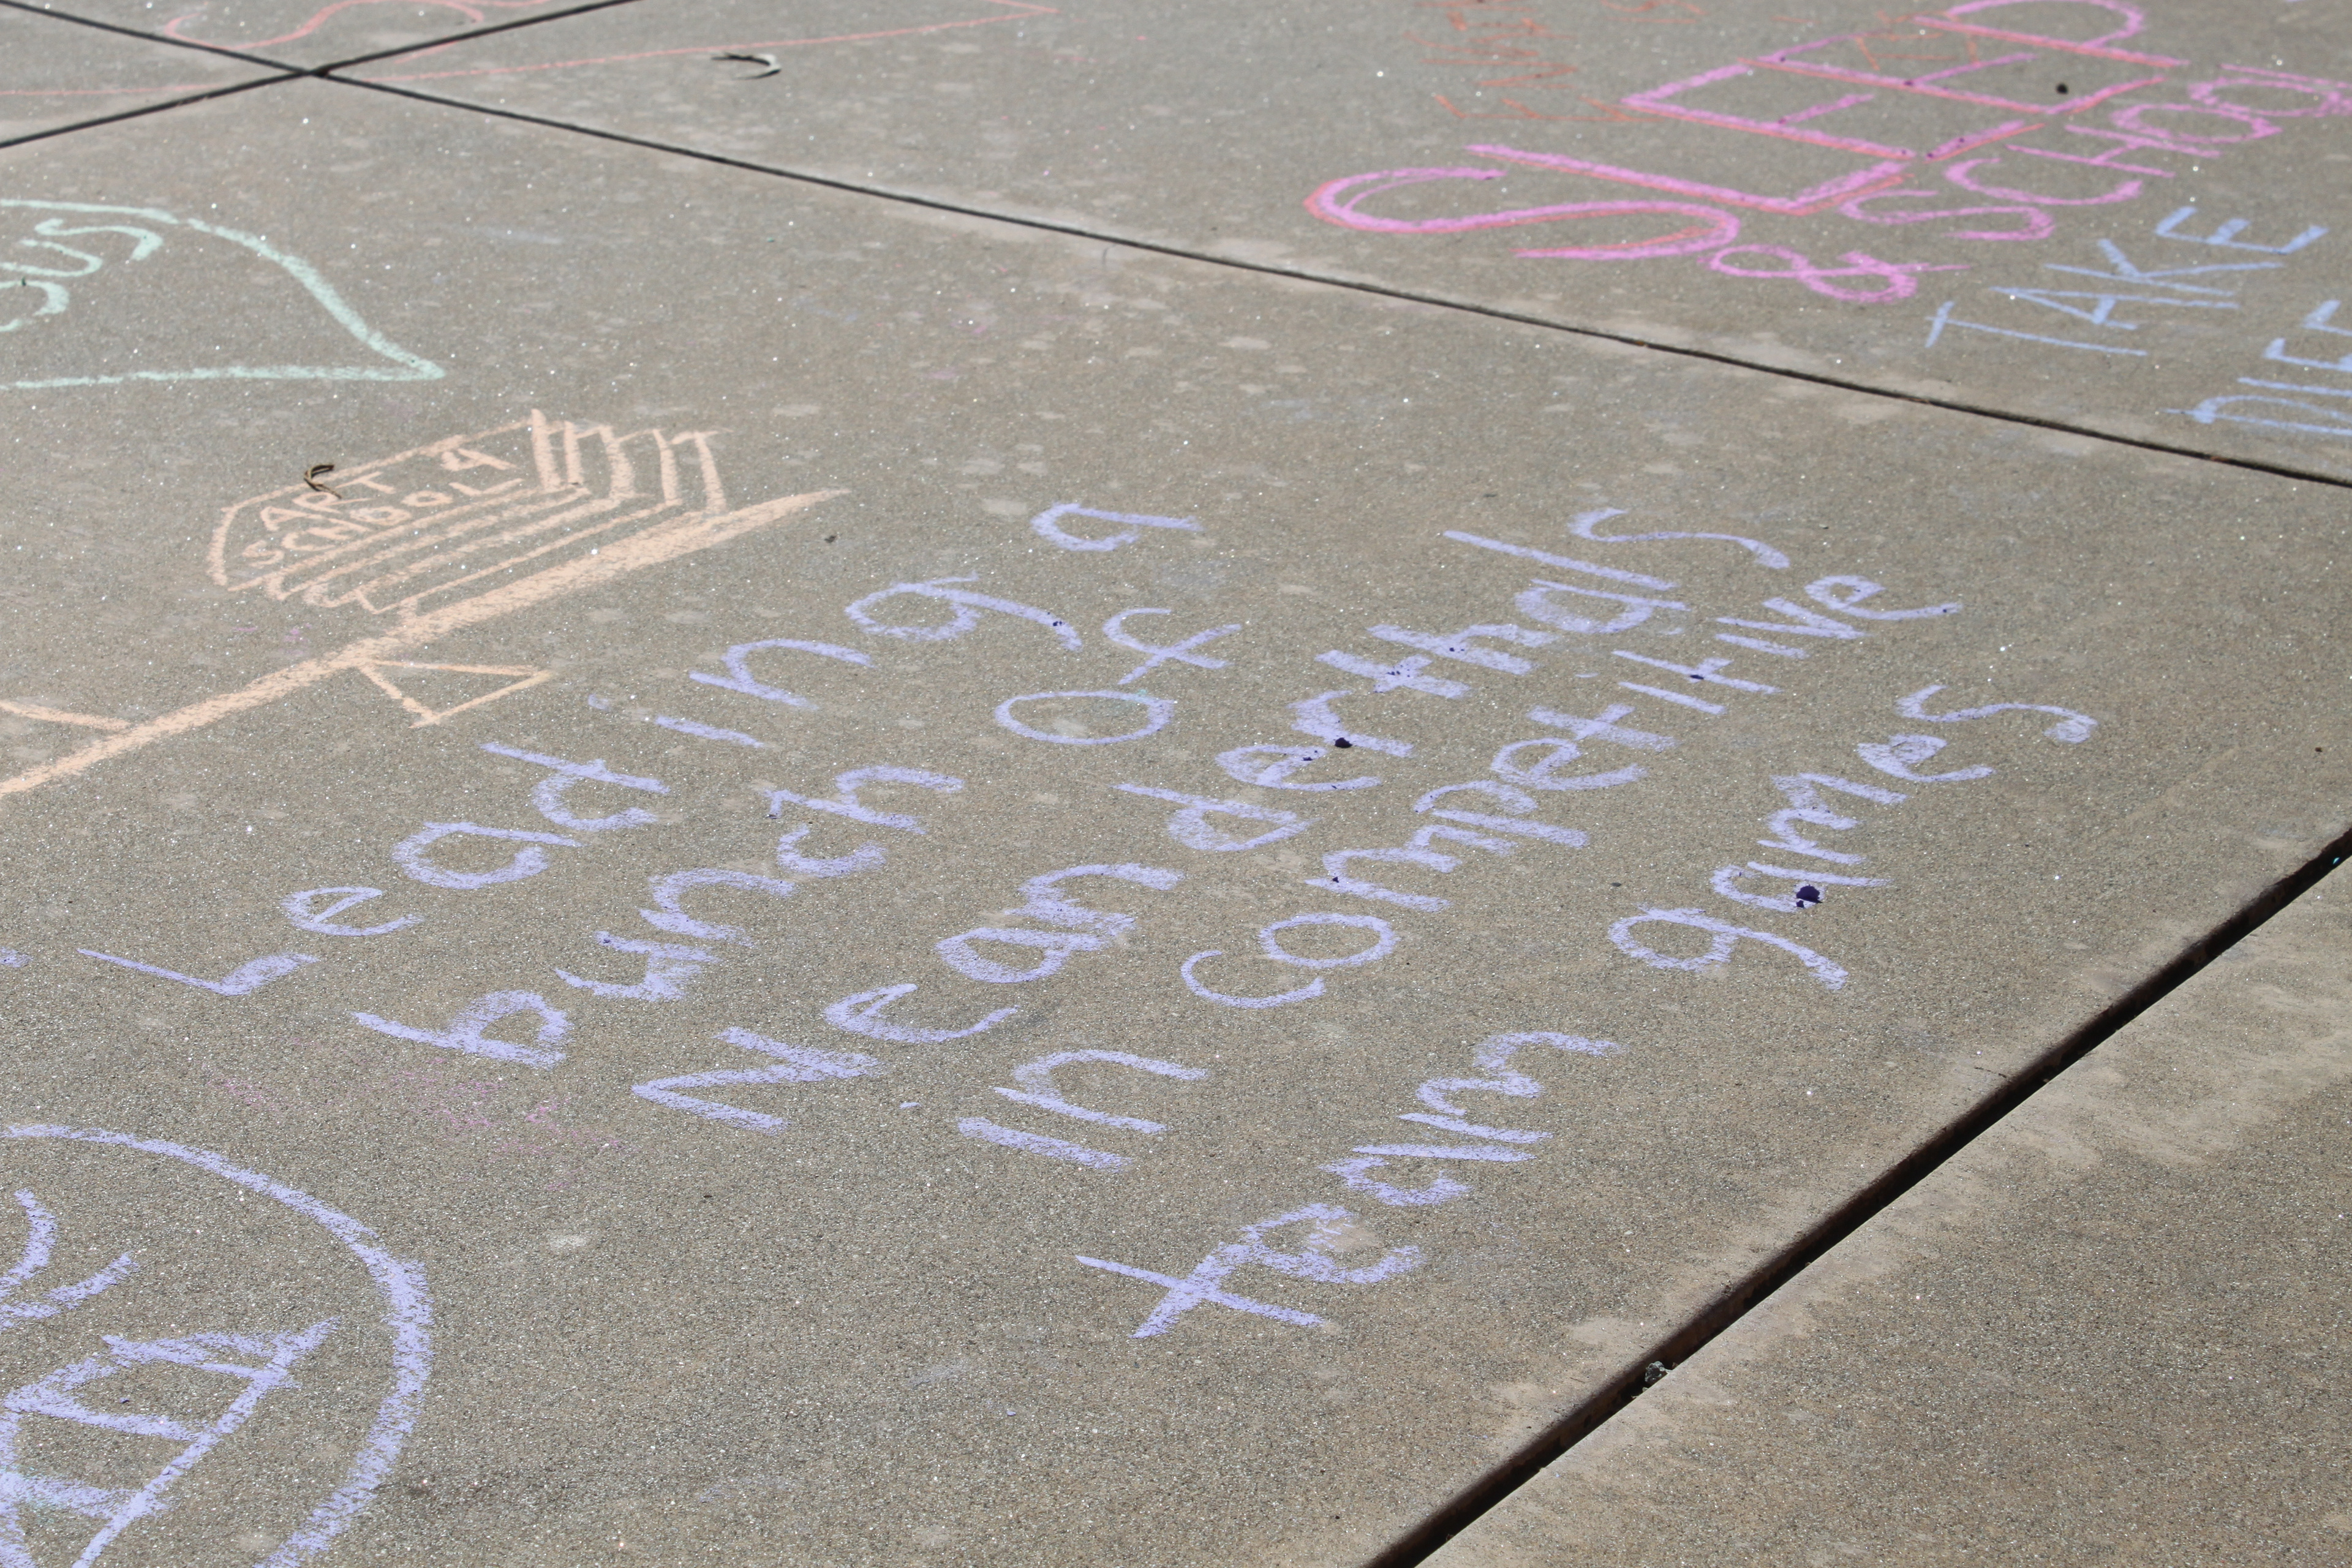 SLEEP
& SCHOOL
TAKE
ART 4
SCHOOL
Leading a
bunch of
Neanderthals
in competitive
team games